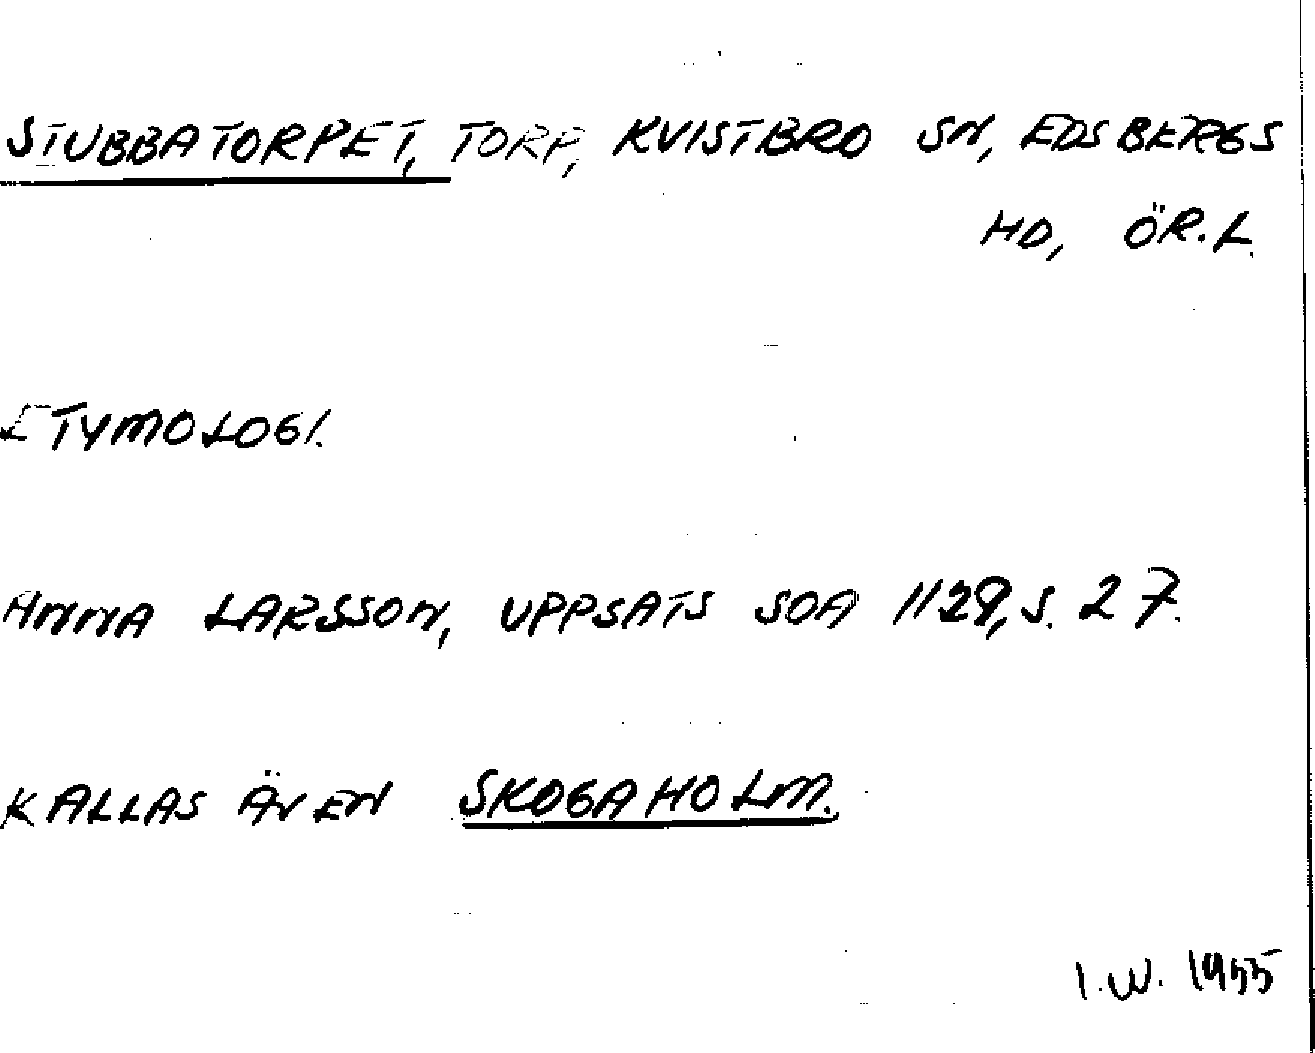 STUBBATORPET, TORP, KVISTBRO SN, EDSBERGS
HD, ÖR.L.
ETYMOLOGI.
ANNA LARSSON, UPPSATS SOA 1129, S. 27.
KALLAS ÄVEN SKOGAHOLM.
I.W. 1955